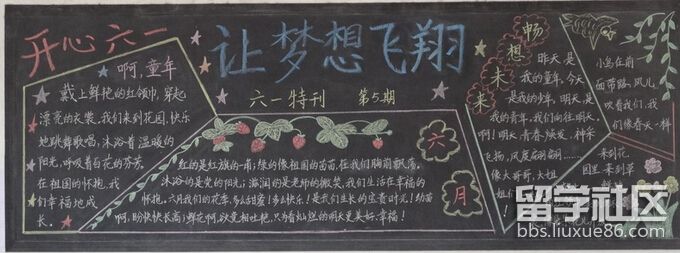 开心六一
让梦想飞翔
六一特刊 第5期
啊,童年
戴上鲜艳的红领巾,穿起
漂亮的衣裳,我们来到花园,快乐
地跳舞歌唱。沐浴着温暖的
阳光,呼吸着百花的芬芳
在祖国的怀抱,我
们幸福地成
长。
红的是红旗的一角;绿的像祖国的苗苗,在我们胸前飘荡。
沐浴的是党的阳光;滋润的是老师的微笑,我们生活在幸福的
怀抱。六月我们的花季,多么甜蜜!多么快乐!是我们生长的宝贵时光!幼苗
啊,盼快快长高;鲜花啊,欲竞相吐艳,只为着灿烂的明天更美好、幸福!
六
月
畅想未来
昨天,是
我的童年,今天
是我的少年,明天,是
我的青年,我们向往明天。
啊!明天,青春焕发,神采
飞扬,风度翩翩……
像大哥哥,大姐
姐们
小鸟在前
面带路,风儿
吹着我们,我
们像春天一样
来到花
园里,来到草
留学社区
bbs.liuxue86.com